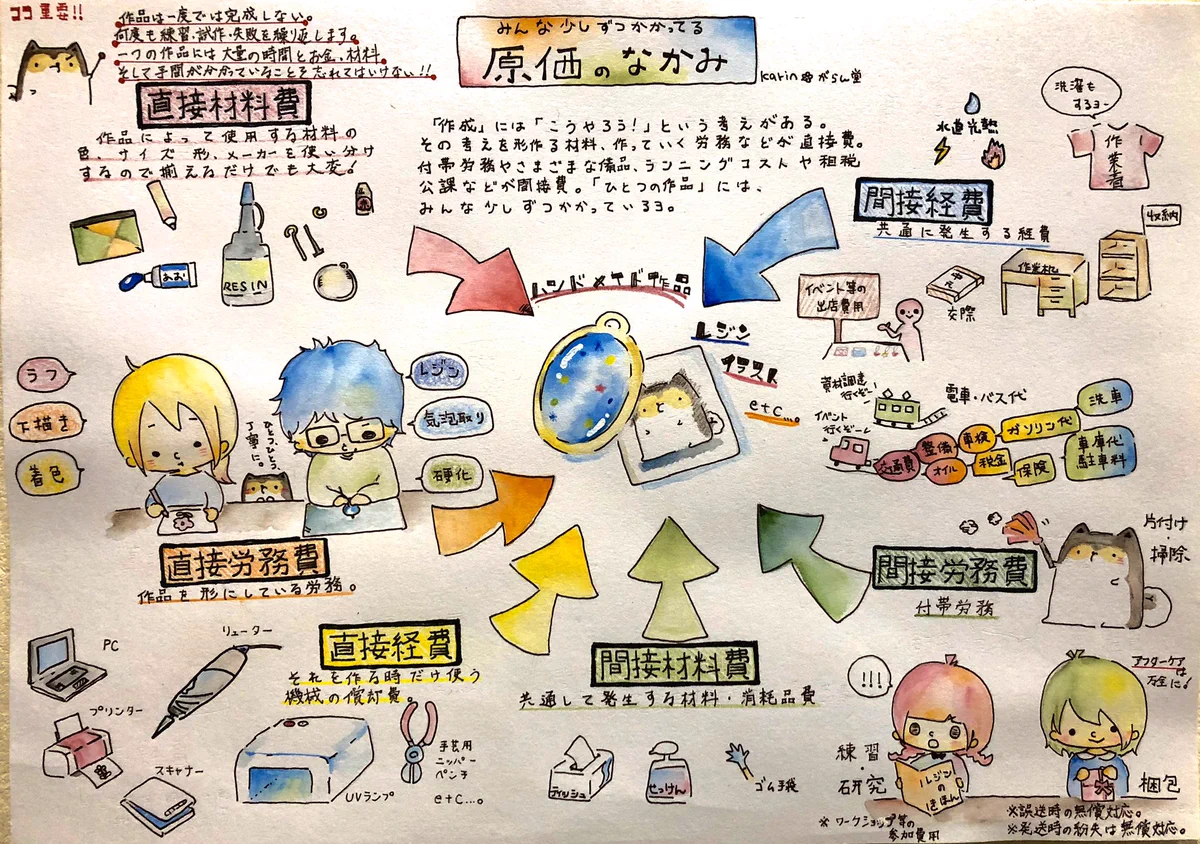 ココ重要!!
作品は一度では完成しない。
何度も練習、試作・失敗を繰り返します。
一つの作品には大量の時間とお金、材料
そして手間がかかっていることを忘れてはいけない!!
みんな少しずつかかってる
原価のなかみ
karin@がらん堂
直接材料費
作品によって使用する材料の
色、サイズ、形、メーカーを使い分け
するので揃えるだけでも大変!
あお
RESIN
「作成」には「こうやろう!」という考えがある。
その考えを形作る材料、作っていく労務などが直接費。
付帯労務やさまざまな備品、ランニングコストや租税
公課などが間接費。「ひとつの作品」には、
みんな少しずつかかっているヨ。
水道光熱
洗濯も
するヨー
作業者
間接経費
共通に発生する経費
収納
作業机
交際
イベント等の
出店費用
資材調達
行くぞー!
イベント
行くぞーい
電車・バス代
交通費
整備
オイル
車検
税金
ガソリン代
保険
洗車
車庫代
駐車料
ハンドメイド作品
レジン
イラスト
etc...。
ラフ
下描き
着色
ひとつ、ひとつ、
丁寧に。
レジン
気泡取り
硬化
直接労務費
作品を形にしている労務。
間接労務費
付帯労務
片付け
・
掃除
直接経費
それを作る時だけ使う
機械の償却費。
PC
リューター
プリンター
スキャナー
UVランプ
手芸用
ニッパー
ペンチ
etc...。
間接材料費
共通して発生する材料・消耗品費
ティッシュ
せっけん
ゴム手袋
!!!
練習
・
研究
レジン
の
きほん
※ワークショップ等の
参加費用
アフターケア
は
万全に!
梱包
※誤送時の無償対応。
※発送時の紛失は無償対応。